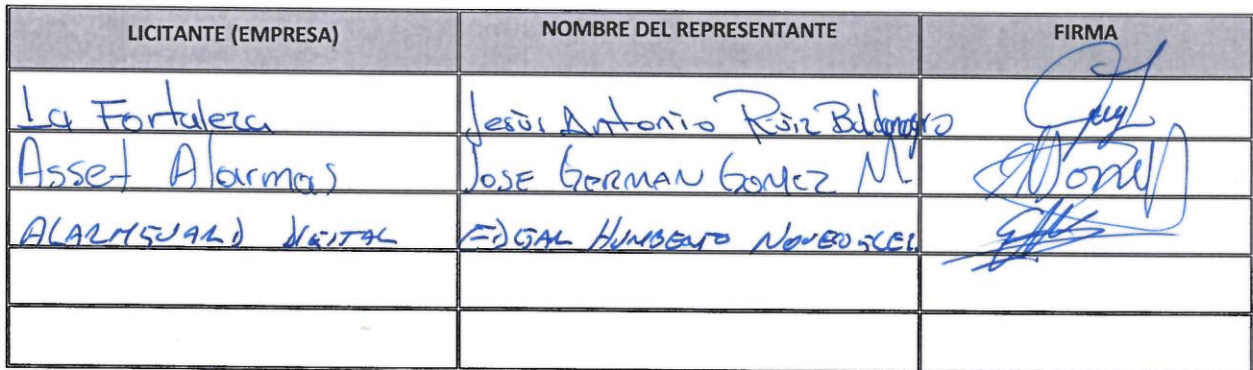 LICITANTE (EMPRESA) NOMBRE DEL REPRESENTANTE FIRMA
La Fortaleza Jesús Antonio Ruiz
Asset Alarmas JOSE GERMAN GOMEZ M.
ALARMGUARD DIGITAL EDGAR HUMBERTO